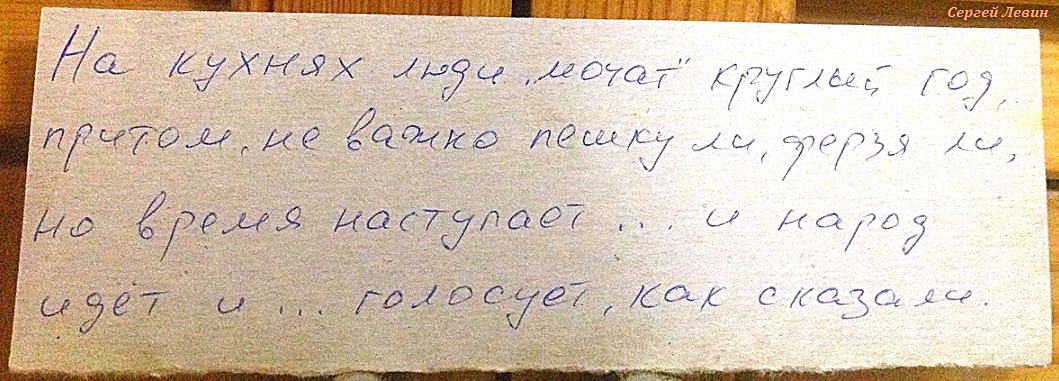 Сергей Левин
На кухнях люди „мочат" круглый год,
притом, не важно пешку ли, ферзя ли,
но время наступает ... и народ
идёт и ... голосует, как сказали.